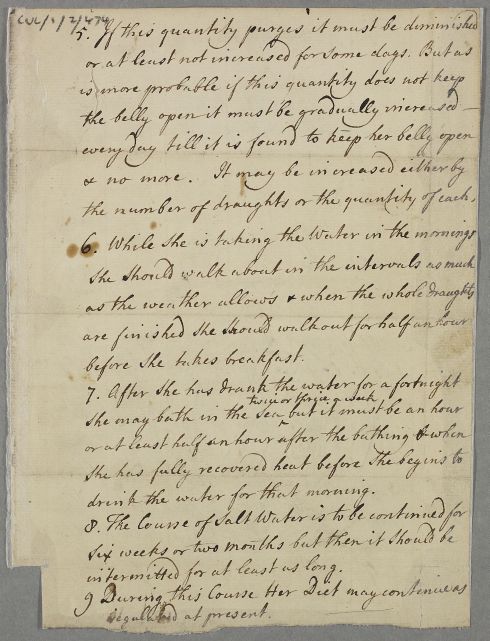 CUL/1/2/474
5. If this quantity purges it must be diminished
or at least not increased for some days. But as
is more probable if this quantity does not keep
the belly open it must be gradually increased
every day till it is found to keep her belly open
& no more. It may be increased either by
the number of draughts or the quantity of each.
6. While she is taking the Water in the mornings
she should walk about in the intervals as much
as the weather allows & when the whole draughts
are finished she should walk out for half an hour
before she takes breakfast.
7. After she has drank the water for a fortnight
twice or thrice a week
she may bath in the sea ‸ but it must be an hour
or at least half an hour after the bathing & when
she has fully recovered heat before she begins to
drink the water for that morning.
8 The Course of Salt Water is to be continued for
six weeks or two months but then it should be
intermitted for at least as long.
9 During this Course Her Diet may continue as
regulated at present.